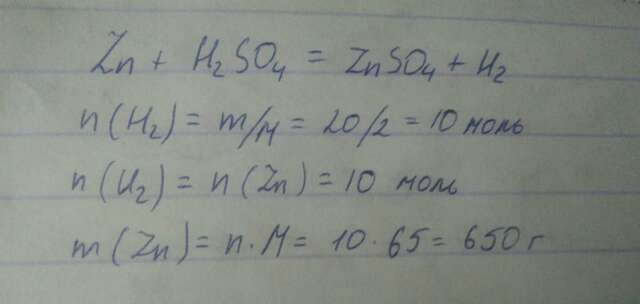 Zn + H₂SO₄ = ZnSO₄ + H₂
n(H₂) = m/M = 20/2 = 10 моль
n(H₂) = n(Zn) = 10 моль
m(Zn) = n · M = 10 · 65 = 650 г